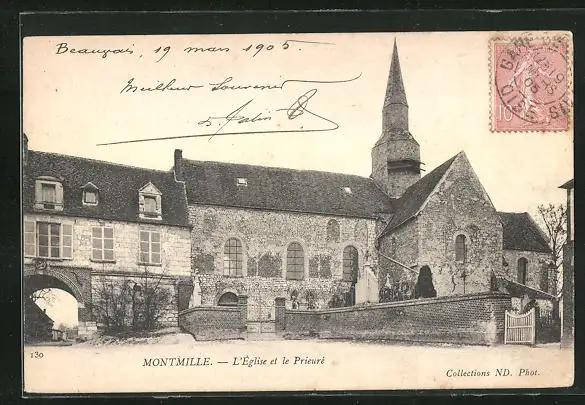 Beauvais, 19 mars 1905
Meilleur Souvenir
10
130
MONTMILLE. — L'Église et le Prieuré
Collections ND. Phot.